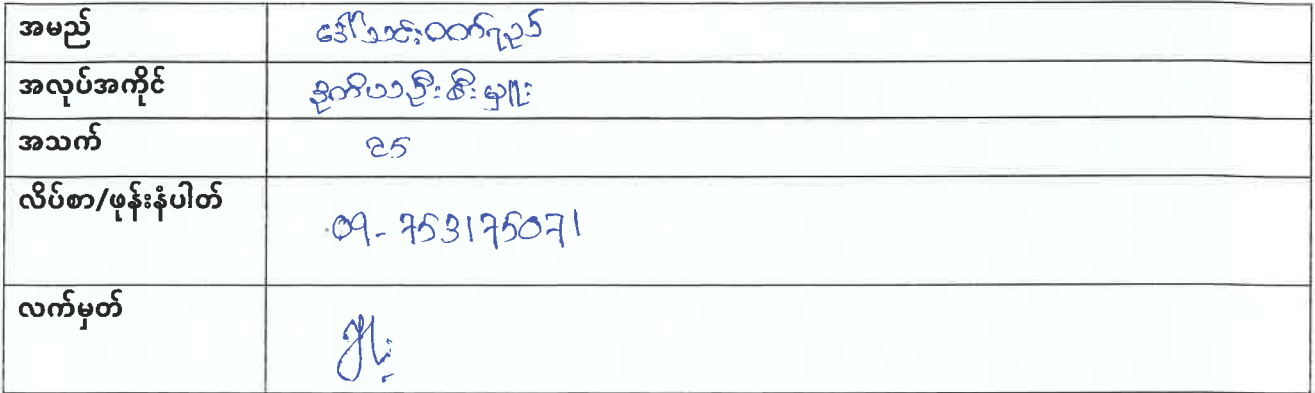 အမည် ဒေါ်သင်းဝတ်ရည်
အလုပ်အကိုင် ဒုတိယဦးစီးမှူး
အသက် ၉၅
လိပ်စာ/ဖုန်းနံပါတ်
09-753175071
လက်မှတ်